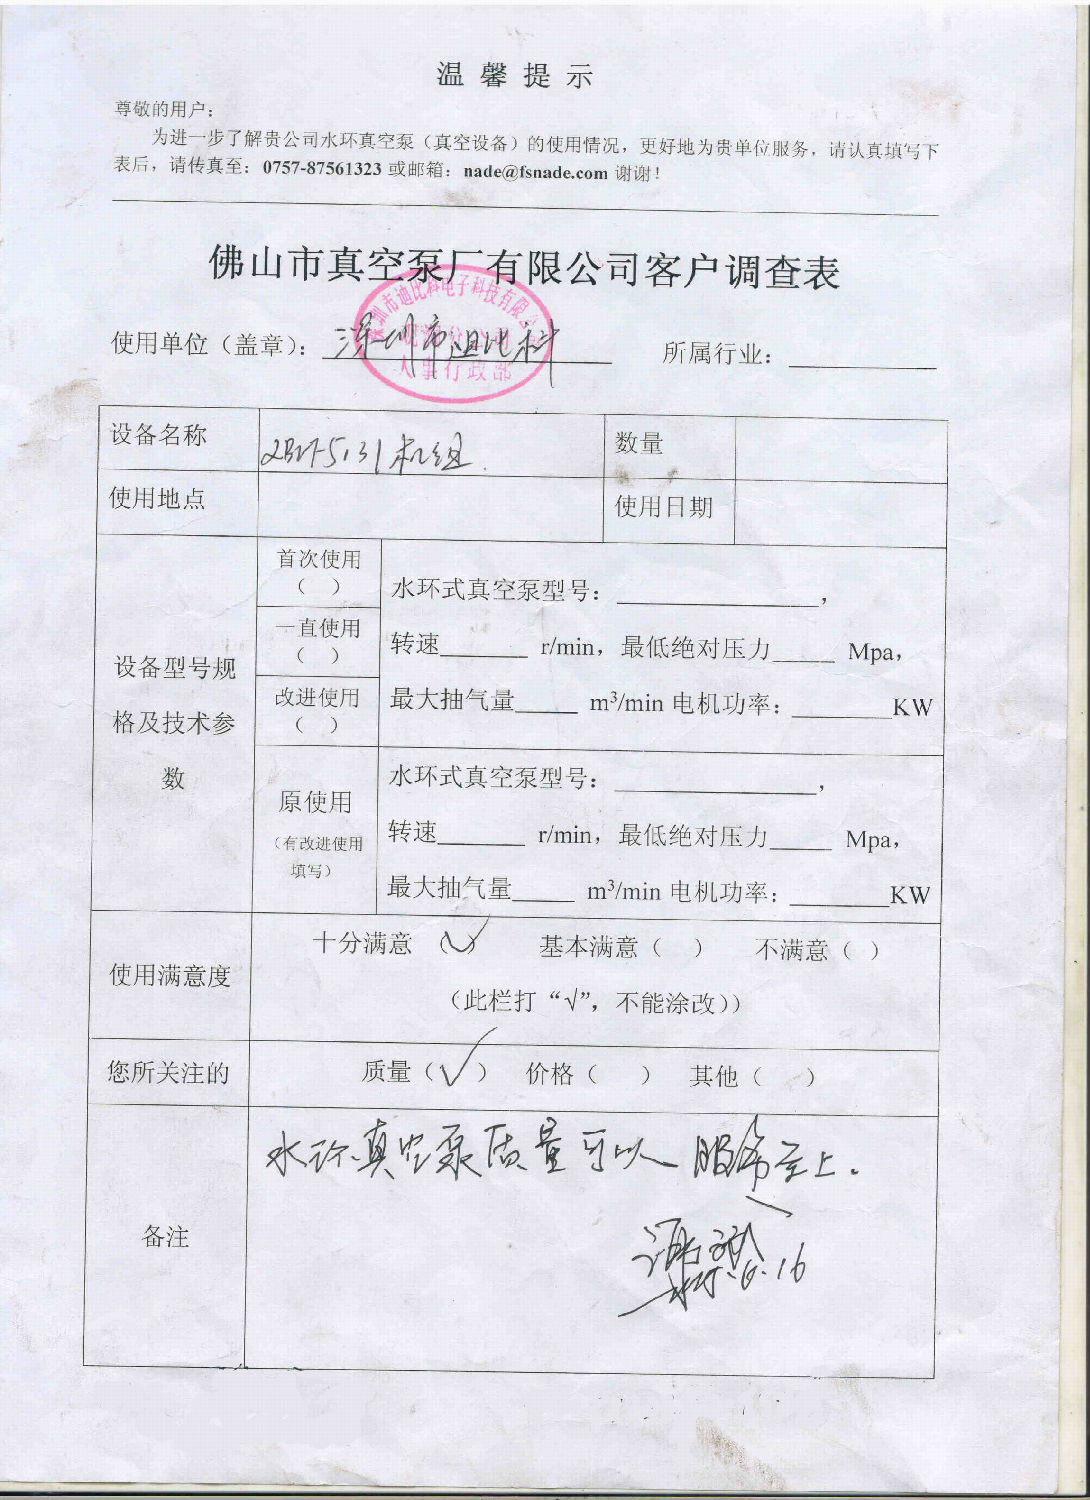 温馨提示
尊敬的用户：
为进一步了解贵公司水环真空泵（真空设备）的使用情况，更好地为贵单位服务，请认真填写下
表后，请传真至：0757-87561323 或邮箱：nade@fsnade.com 谢谢！
佛山市真空泵厂有限公司客户调查表
深圳市迪比科电子科技有限公司
分公司
人事行政部
使用单位（盖章）： 深圳市迪比科 所属行业：
设备名称 2BV-5131机组. 数量
使用地点 使用日期
设备型号规格及技术参数
首次使用
（ ）
一直使用
（ ）
改进使用
（ ）
水环式真空泵型号：______，
转速______ r/min，最低绝对压力______ Mpa，
最大抽气量______ m³/min 电机功率：______KW
原使用
（有改进使用
填写）
水环式真空泵型号：______，
转速______ r/min，最低绝对压力______ Mpa，
最大抽气量______ m³/min 电机功率：______KW
使用满意度 十分满意 （√） 基本满意（ ） 不满意（ ）
（此栏打“√”，不能涂改））
您所关注的 质量（√） 价格（ ） 其他（ ）
备注
水环真空泵质量可以 服务至上。